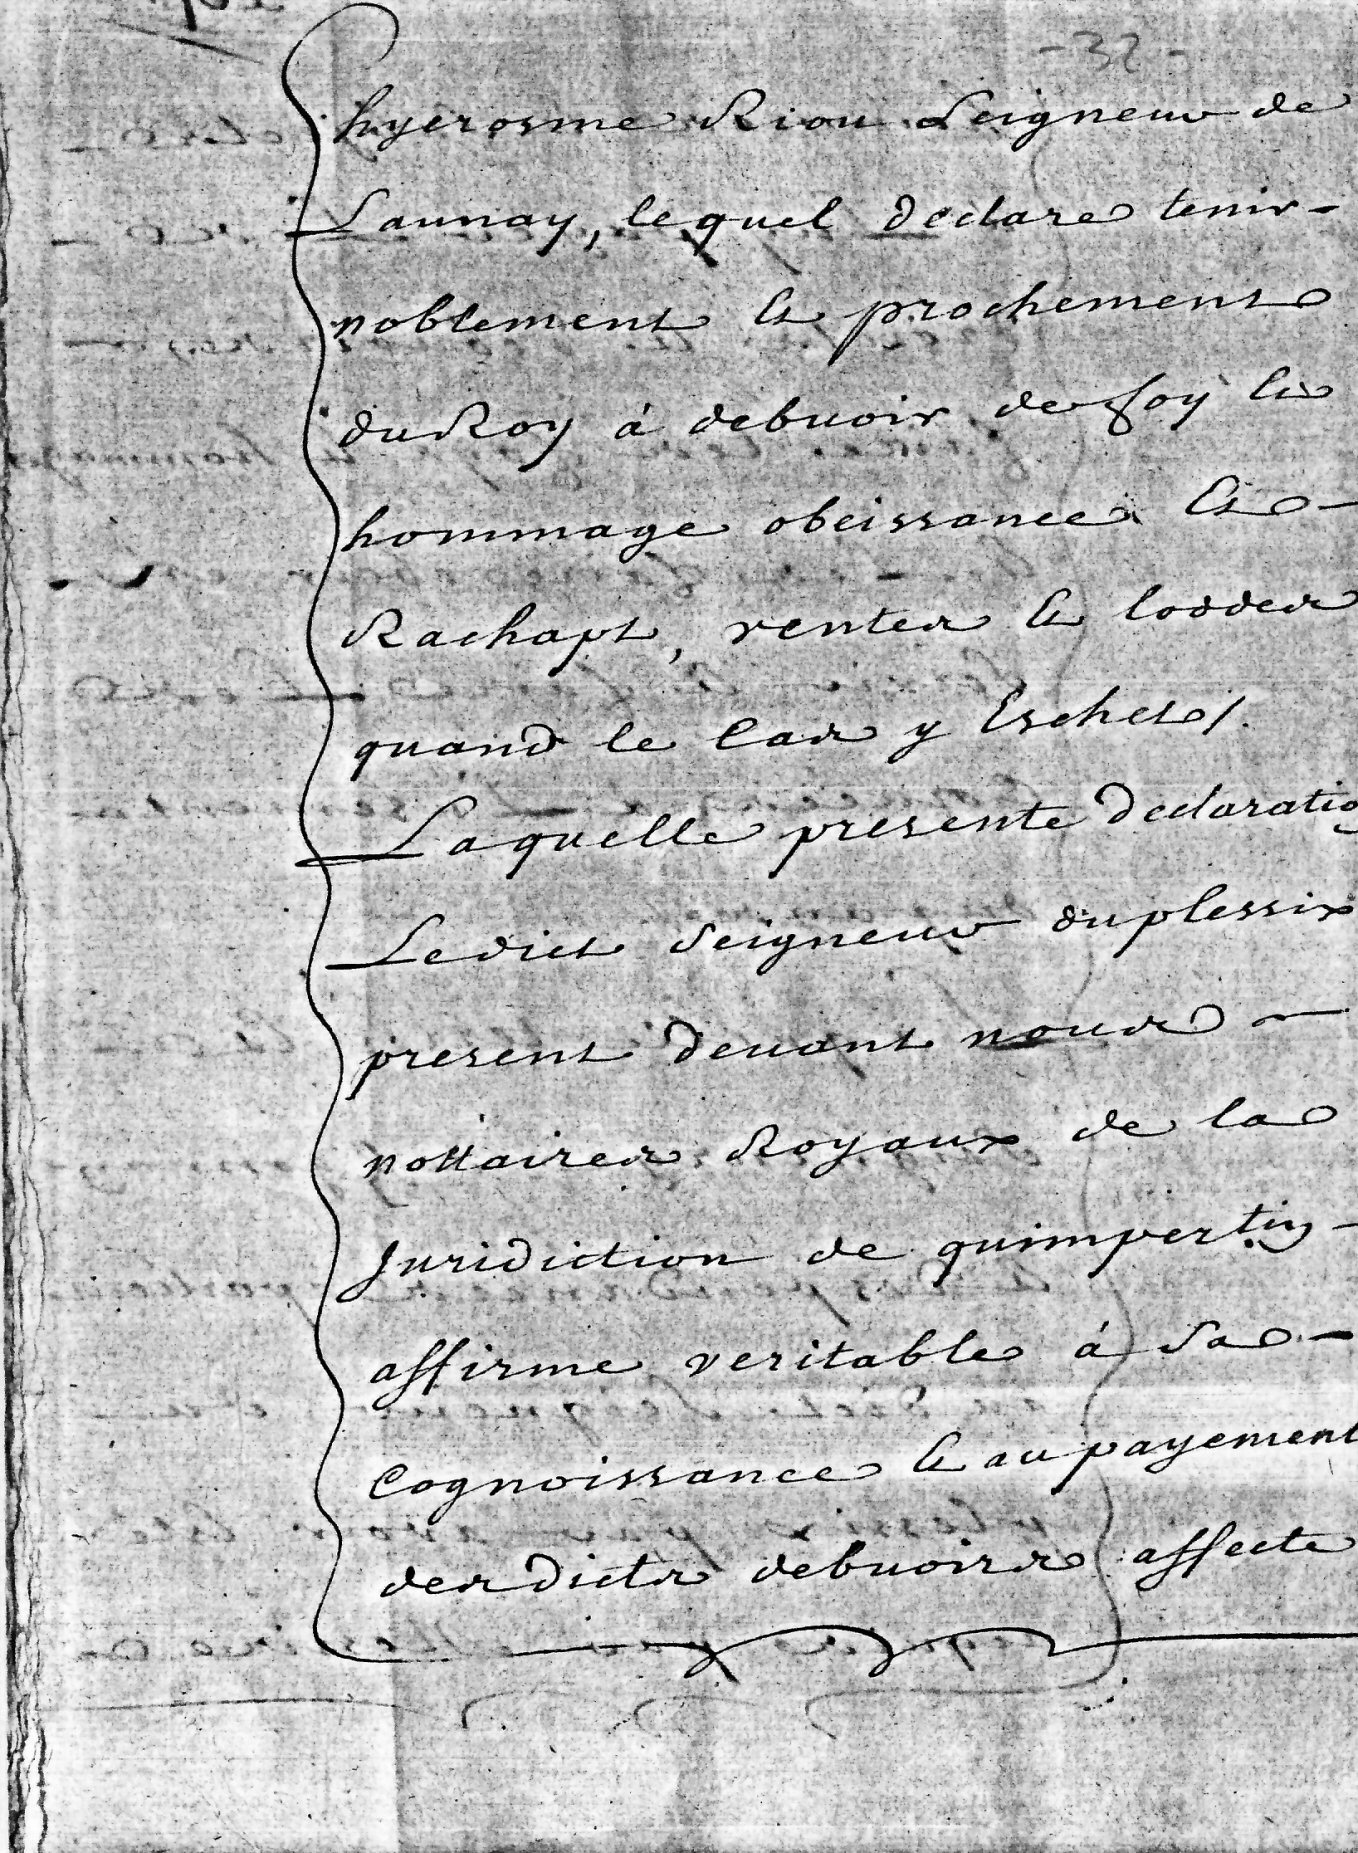 - 32 -
hyerosme Riou Seigneur de
Launay, lequel declare tenir -
noblement et prochement
du Roy à debuoir de foy et
hommage obeissance et -
Rachapt, ventes et loddes
quand le Cas y Eschet /.
Laquelle presente declaration
Ledict Seigneur du plessix
present deuant nous
nottaires Royaux de la
Juridiction de quimpertin -
affirme veritable à sa -
Cognoissance et au payement
desdicts debuoirs affecte